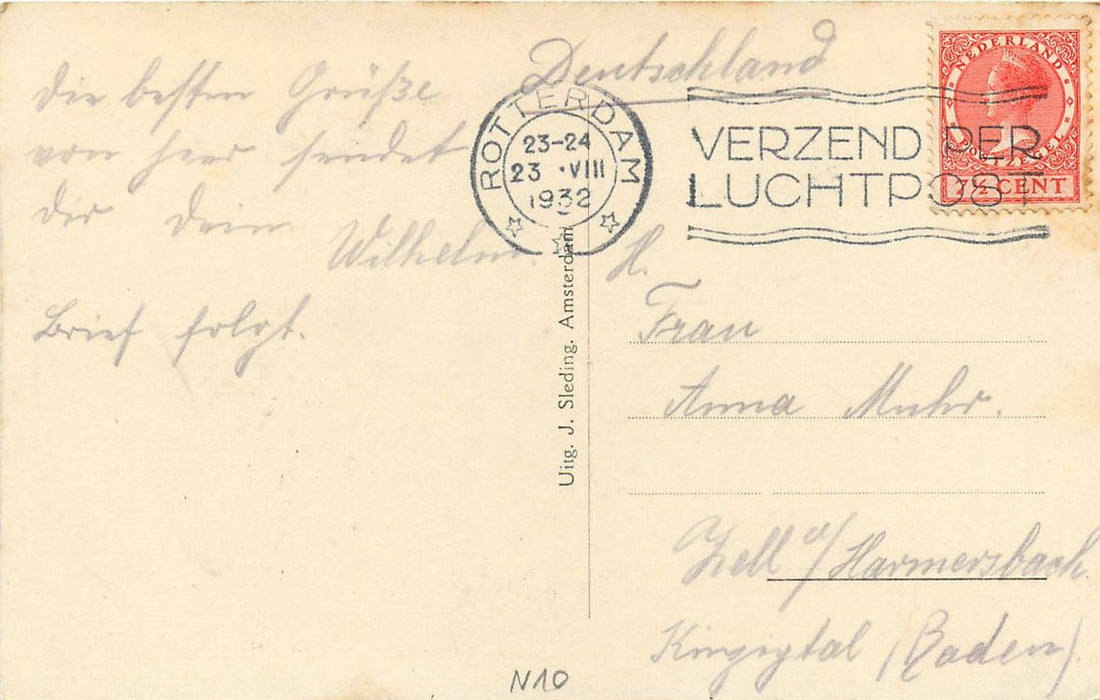 Die besten Grüße
von hier sendet
dir dein
Wilhelm.
Brief folgt.
Deutschland
ROTTERDAM
23-24
23 ·VIII
1932
VERZEND PER
LUCHTPOST
NEDERLAND
7½ CENT
Uitg. J. Sleding. Amsterdam
H.
Frau
Anna Muhr.
Zell a/Harmersbach
Kinzigtal (Baden)
N10